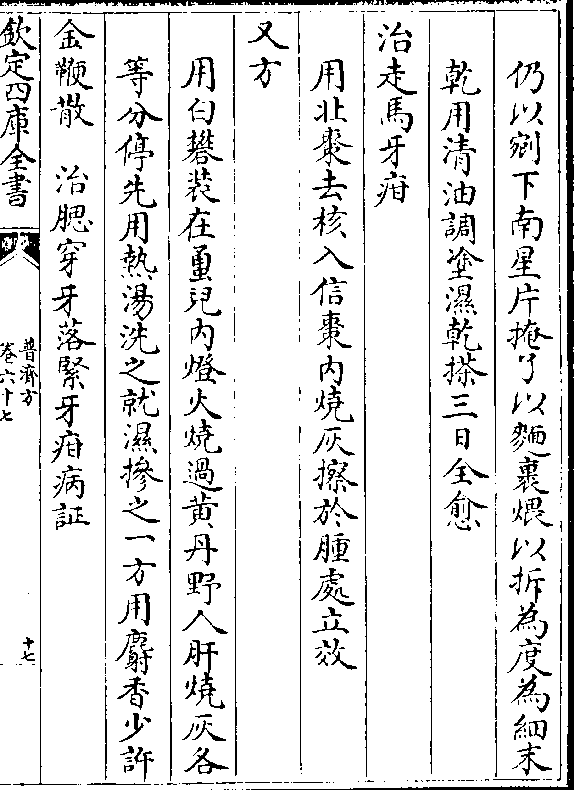 仍以剜下南星片掩了以麵裹煨以拆為度為細末
乾用清油調塗濕乾搽三日全愈
治走馬牙疳
用北棗去核入信棗內燒灰擦於腫處立效
又方
用白礬裝在蛋兒內燈火燒過黄丹野人肝燒灰各
等分停先用熱湯洗之就濕摻之一方用麝香少許
金鞭散　治腮穿牙落緊牙疳病証
欽定四庫全書
普濟方
卷六十七
十七